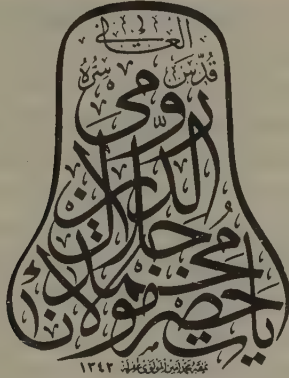 يا حضرت مولانا
محمد جلال
الدين
رومى
قدس سره
العالى
محمد امين
١٣٤٣